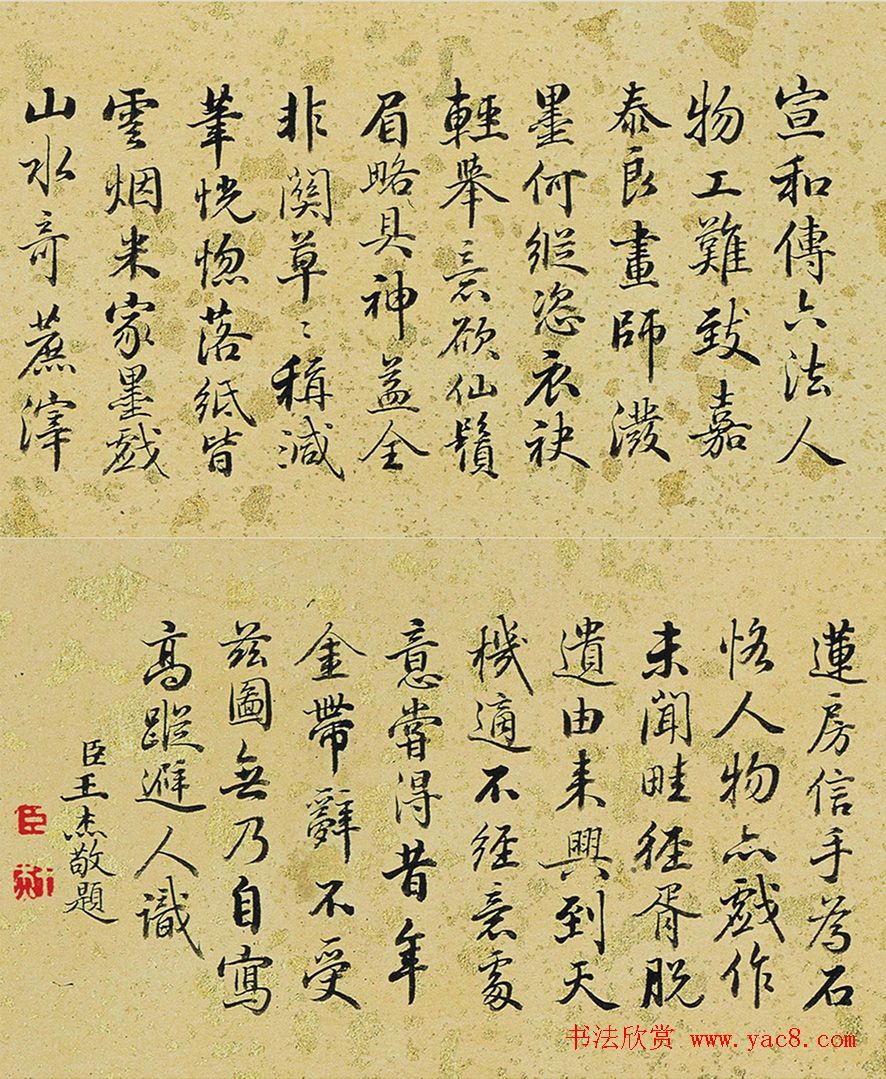 宣和傳六法人
物工難致嘉
泰良畫師潑
墨何縱恣衣袂
輕舉意欲仙鬚
眉略具神益全
非關草〻稱減
筆恍惚落紙皆
雲烟米家墨戲
山水奇蔗滓
蓮房信手為石
恪人物亦戲作
未聞畦徑胥脫
遺由来興到天
機適不經意處
意嘗得昔年
金帶辭不受
茲圖無乃自寫
高蹤避人識
臣王杰敬題
臣
书法欣赏 www.yac8.com